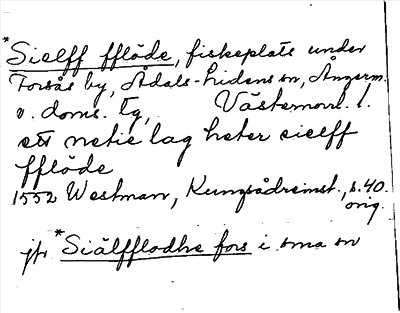 *Sielff fflöde, fiskeplats under
Forsås by, Ådals-Lidens sn, Ångerm.
o. doms. tg, Västernorrl. l.
ett netie lag heter sielff
fflöde
1552 Westman, Kungsådreinst., s. 40.
orig.
jfr *Siälfflodhe fors i sma sn